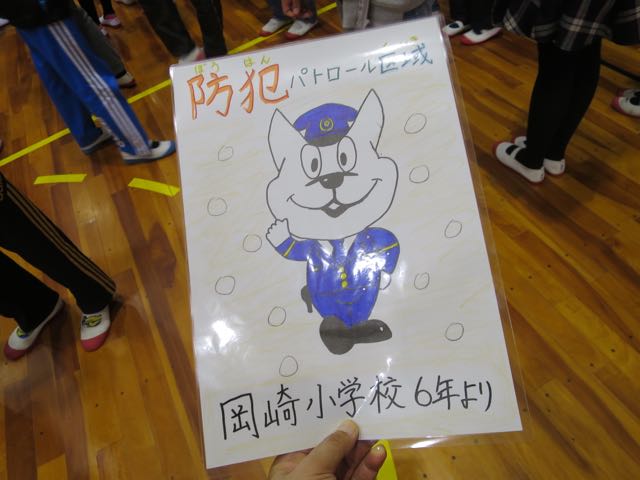 ぼう はん くいき
防犯パトロール区域
岡崎小学校6年より